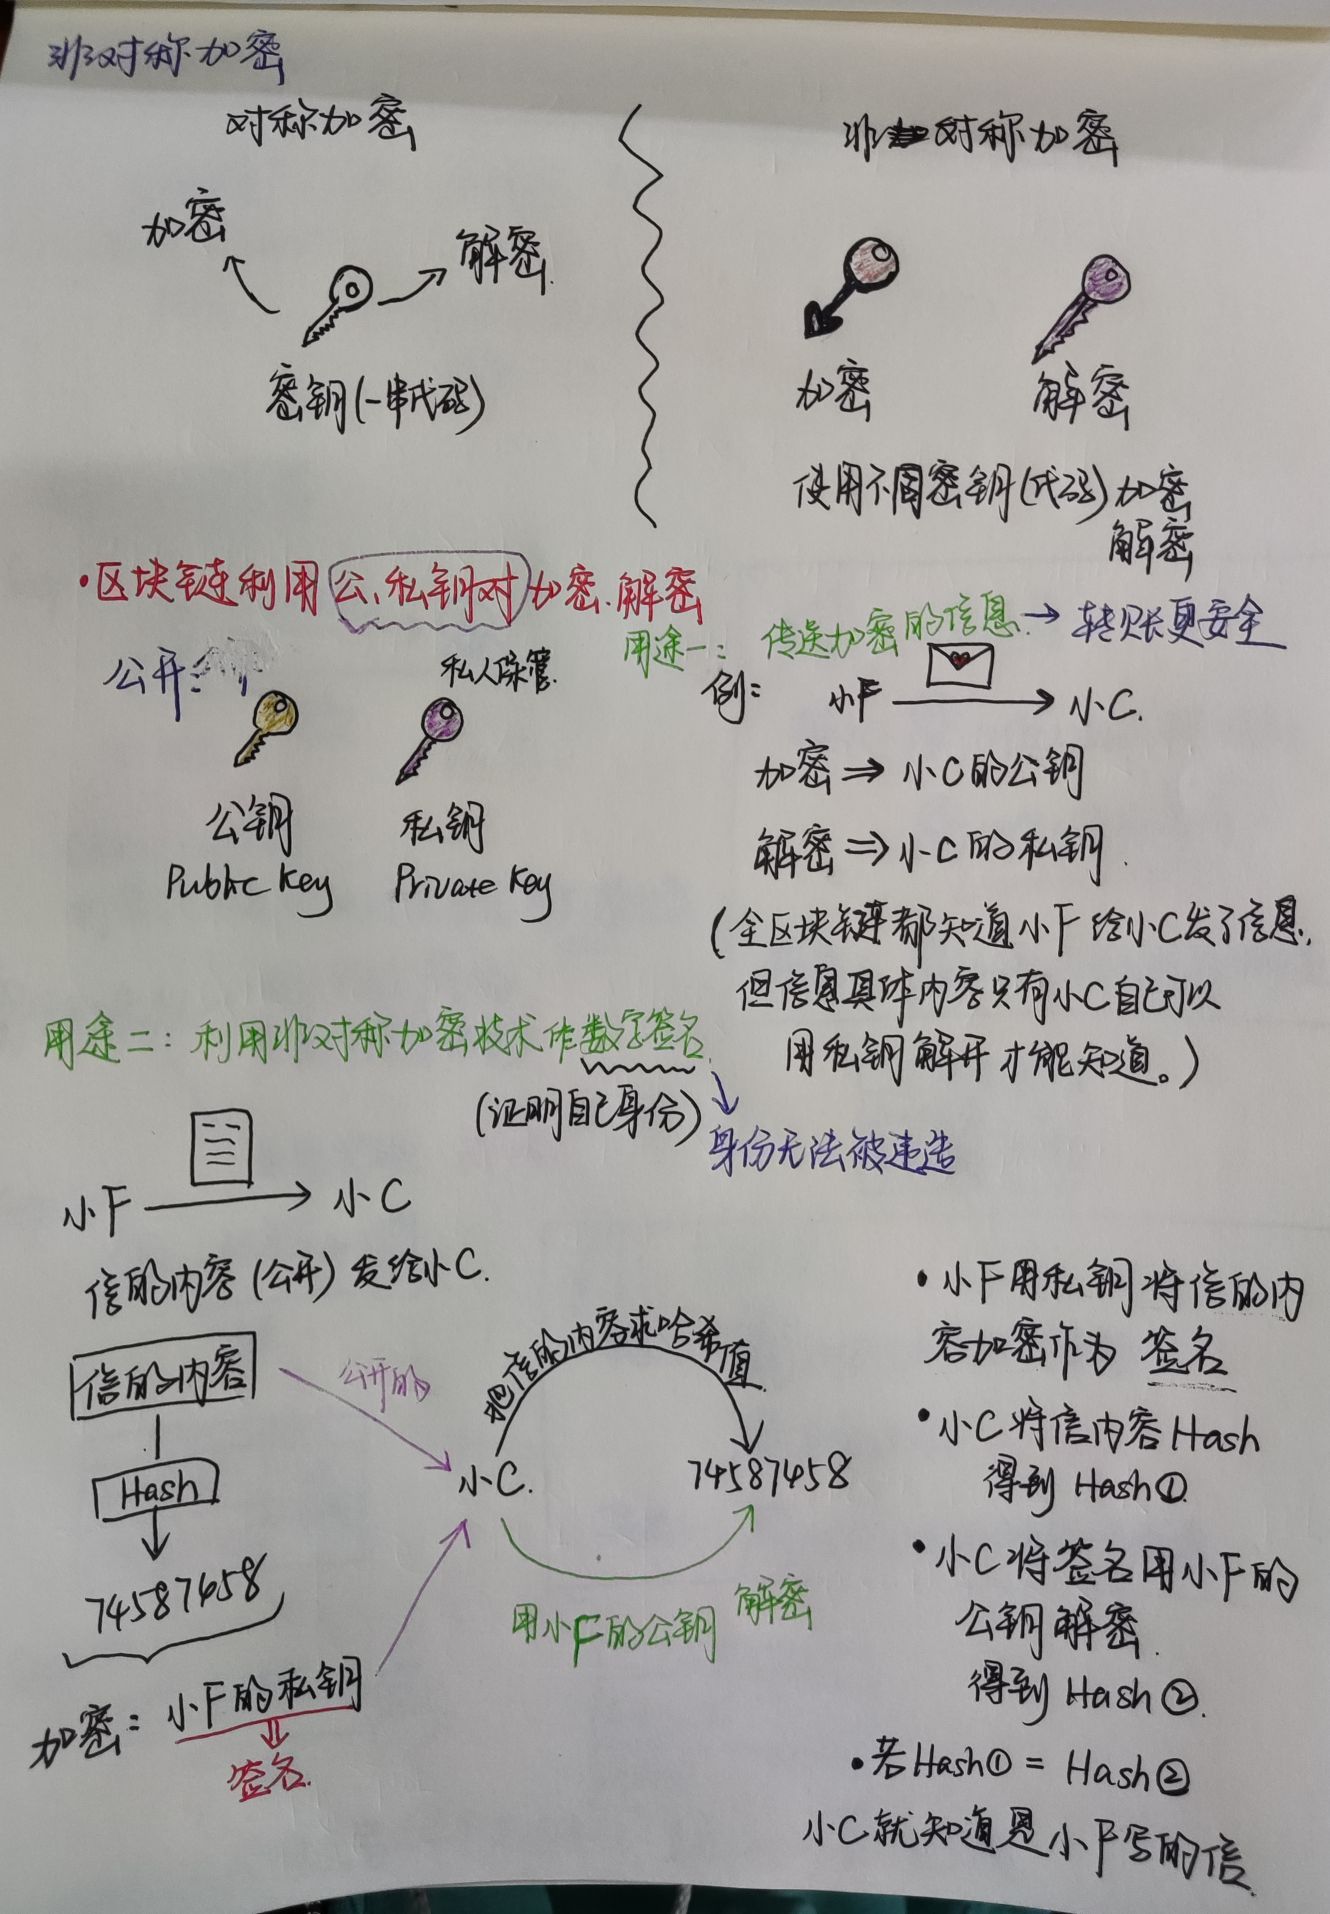 非对称加密
对称加密
加密
解密
密钥(一串代码)
非对称加密
加密
解密
使用不同密钥(代码)加密
解密
·区块链利用公、私钥对加密、解密
公开:
私人保管
公钥
私钥
Public Key
Private Key
用途一: 传送加密的信息→转账更安全
例: 小F → 小C.
加密⇒小C的公钥
解密⇒小C的私钥.
(全区块链都知道小F给小C发了信息,
但信息具体内容只有小C自己可以
用私钥解开才能知道。)
用途二:利用非对称加密技术作数字签名
(证明自己身份)
身份无法被
小F → 小C
信的内容(公开)发给小C.
信的内容
公开的
Hash
74587458
加密:小F的私钥
签名.
把信的内容求哈希值
小C.
74587458
用小F的公钥
解密
·小F用私钥将信的内
容加密作为 签名
·小C将信内容Hash
得到 Hash①
·小C将签名用小F的
公钥解密.
得到 Hash②.
·若Hash① = Hash②
小C就知道是小F写的信.